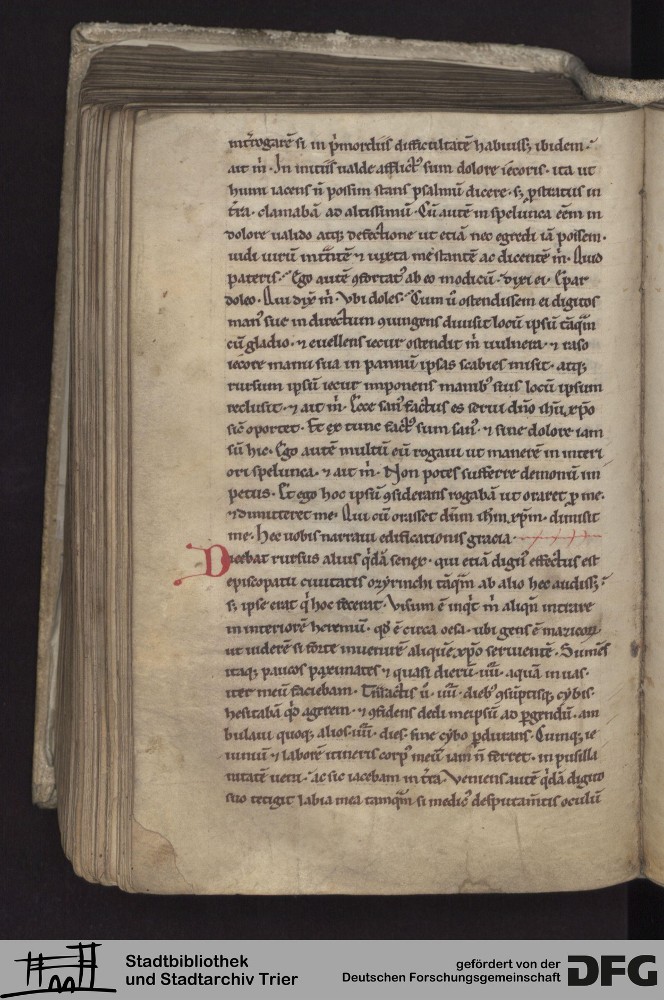 int̄rogarē si in p̄mordiis difficultatē habuiss; ibidem.
ait m̄. In initiis ualde afflict᷒ sum dolore iecoris. ita ut
humi iacens n̄ possim stans psalmū dicere. s; p̄stratus in
t̄ra. clamabā ad altissimū. Cū autē in spelunca eēm in
dolore ualido atq; defectione ut etiā nec egredi iā possem.
uidi uirū int̄ntē ⁊ iuxta me stantē ac dicentē m̄. Quid
pateris. Ego autē ꝯfortat᷒ ab eo modicū. dixi ei. Epar
doleo. Qui dix̄ m̄. Vbi doles. Cum ū ostendissem ei digitos
man᷒ sue in directum ꝯiungens diuisit locū ipsū tāq̄m
cū gladio. ⁊ euellens iecur ostendit m̄ uulnera. ⁊ raso
iecore manu sua in pannū ipsas scabies misit. atq;
rursum ipsū iecur imponens manib᷒ suis locū ipsum
reclusit. ⁊ ait m̄. Ecce san᷒ factus es serui dn̄o ih̄u xp̄o
sic̄ oportet. Et ex tunc fact᷒ sum san᷒. ⁊ sine dolore iam
sū hic. Ego autē multū eū rogaui ut manerē in interi
ori spelunca. ⁊ ait m̄. Non potes sufferre demonū im
petus. Et ego hoc ipsū ꝯsiderans rogabā ut oraret ꝓ me.
⁊ dimitteret me. Qui cū orasset dn̄m ih̄m xp̄m. dimisit
me. Hec uobis narraui edificationis gracia.
Dicebat rursus alius q̇dā senex. qui etiā dign᷒ effectus est
episcopatu ciuitatis oxyrinchi tāq̄m ab alio hec audiss;
s; ipse erat q̇ hoc fecerat. Visum ē inq̇t m̄ aliqn̄ intrare
in interiorē heremū. qd̄ ē circa oasa. ubi gens ē mazicoꝝ
ut uiderē si forte inuenirē aliquē xp̄o seruientē. Sumēs
itaq; paucos paxunates ⁊ quasi dierū .iiii. aquā in uas.
iter meū faciebam. Trāsactis ū .iiii. dieb᷒ ꝯsūptisq; cybis.
hesitabā qd̄ agerem. ⁊ ꝯfidens dedi meipsū ad pergendū. am
bulaui quoq; alios .iiii. dies. sine cybo ꝑdurans. Cumq; ie
iuniū ⁊ laborē itineris corp᷒ meū iam n̄ ferret. in pusilla
nitatē ueni. ac sic iacebam in t̄ra. Veniens autē q̇dā digito
suo tetigit labia mea tamq̄m si medic᷒ desputam̄tis oculū
Stadtbibliothek
und Stadtarchiv Trier
gefördert von der
Deutschen Forschungsgemeinschaft
DFG